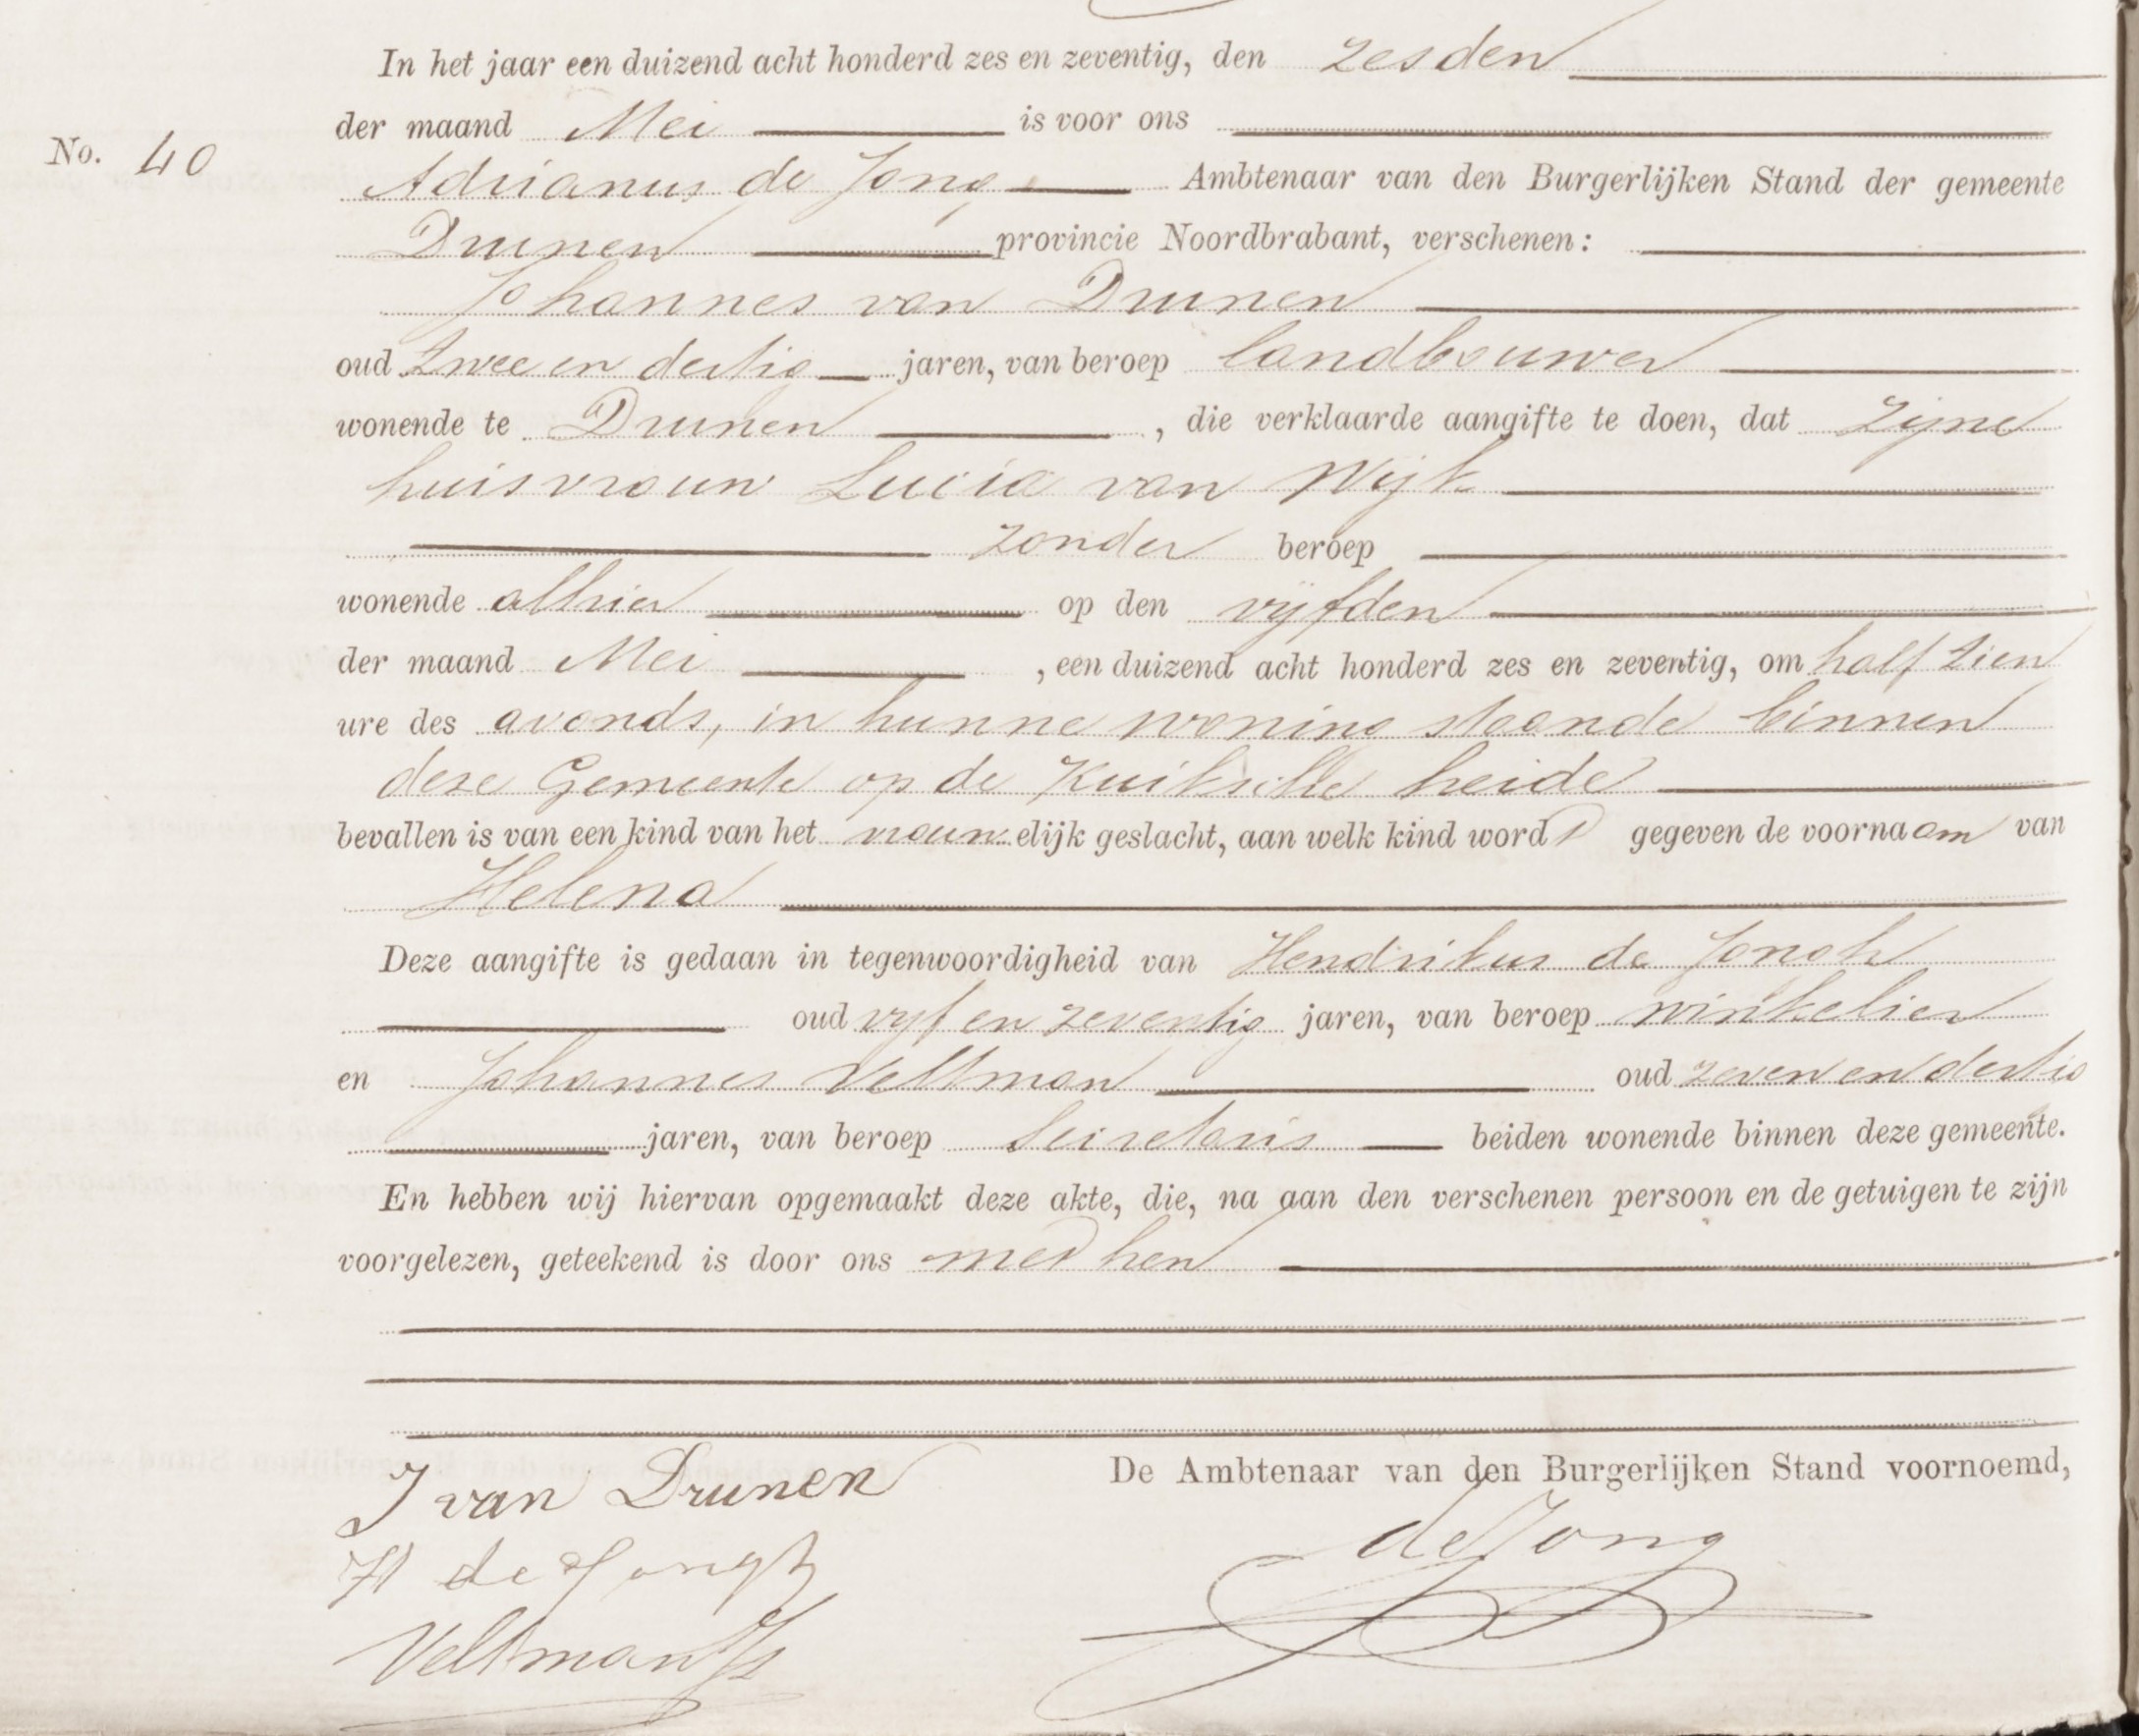 In het jaar een duizend acht honderd zes en zeventig, den zesden
der maand Mei is voor ons
No. 40
Adrianus de Jong Ambtenaar van den Burgerlijken Stand der gemeente
Drunen provincie Noordbrabant, verschenen:
Johannes van Drunen
oud twee en dertig jaren, van beroep landbouwer
wonende te Drunen, die verklaarde aangifte te doen, dat zijne
huisvrouw Lucia van Wijk
zonder beroep
wonende alhier op den vijfden
der maand Mei, een duizend acht honderd zes en zeventig, om half tien
ure des avonds, in hunne woning staande binnen
deze Gemeente op de heide
bevallen is van een kind van het vrouwelijk geslacht, aan welk kind wordt gegeven de voornaam van
Helena
Deze aangifte is gedaan in tegenwoordigheid van Hendrikus de Jongh
oud vijf en zeventig jaren, van beroep winkelier
en Johannes Veltman oud zeven en dertig
jaren, van beroep Secretaris beiden wonende binnen deze gemeente.
En hebben wij hiervan opgemaakt deze akte, die, na aan den verschenen persoon en de getuigen te zijn
voorgelezen, geteekend is door ons met hen
J van Drunen
De Ambtenaar van den Burgerlijken Stand voornoemd,
de Jong
H de Jongh
Veltman